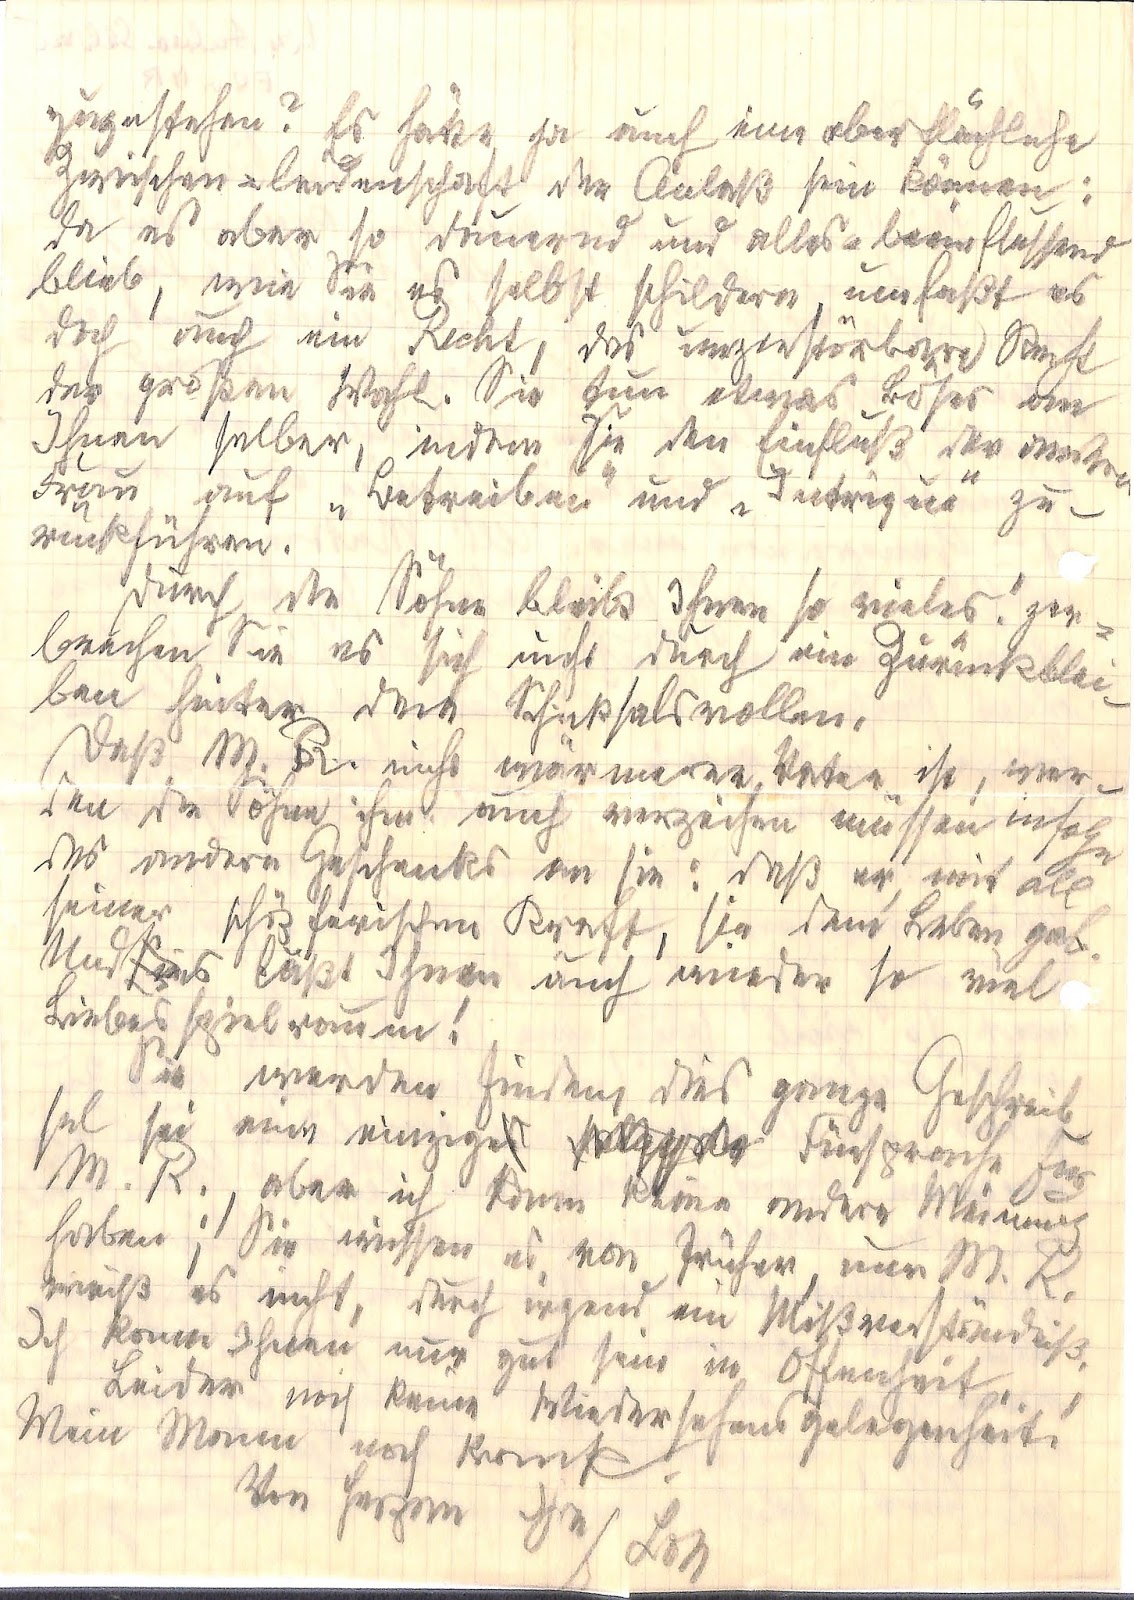 zugestehen? Es hätte ja auch eine oberflächliche
Zwischen-leidenschaft der Anlaß sein können:
da es aber so dauernd und alles-beeinflussend
blieb, wie Sie es selbst schildern, umfaßt es
doch auch ein Recht, das unzerstörbare Recht
der großen Wahl. Sie tun etwas Böses an
Ihnen selber, indem Sie den Einfluß der zweiten
Frau auf „Betreiben" und „Intrigue" zu-
rückführen.
Durch die Söhne bleibt Ihnen so vieles! zer-
brechen Sie es sich nicht durch ein Zurückblei-
ben hinter dem Schicksalsvollen.
Daß M. R. nicht wärmerer Vater ist, wer-
den die Söhne ihm auch verzeihen müssen infolge
des andern Geschenks an sie: daß er, mit all
seiner schöpferischen Kraft, sie dem Leben gab.
Und läßt Ihnen auch wieder so viel
Liebesspielraum!
Sie werden finden, dies ganze Geschreib
sel sei eine einzige Fürsprache für
M. R., aber ich kann keine andere Meinung
haben; Sie wissen es von früher, nur M. R.
weiß es nicht, durch irgend ein Mißverständniß.
Ich kann Ihnen nur gut sein in Offenheit.
Leider noch keine Wiedersehensgelegenheit!
Mein Mann noch krank.
Von Herzen Ihre Lou